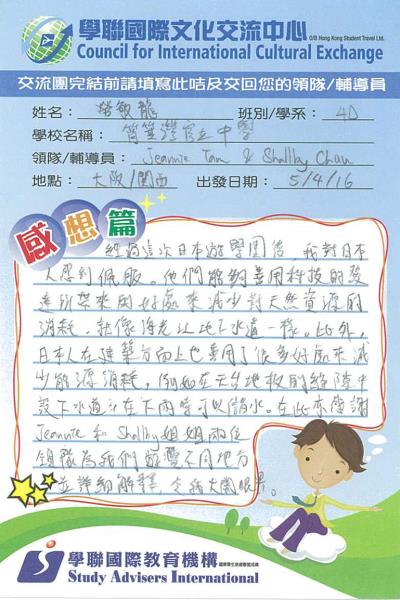 學聯國際文化交流中心 O/B Hong Kong Student Travel Ltd.
Council for International Cultural Exchange
交流團完結前請填寫此咭及交回您的領隊/輔導員
姓名： 敏龍 班別/學系： 4D
學校名稱： 筲箕灣官立中學
領隊/輔導員： Jeannie Tam & Shallby Chau
地點： 大阪/關西 出發日期： 5/4/16
感想篇
經過這次日本遊學團後，我對日本
人感到佩服。他們能夠善用科技的發
達所帶來的好處來減少對天然資源的
消耗，就像海老江地下水道一樣。此外，
日本人在建築方面上也善用了很多好處來減
少能源消耗，例如在天台地板的縫隙中
設下水道，在下雨時可以儲水。在此亦感謝
Jeannie 和 Shallby姐姐兩位
領隊為我們遊覽不同地方
並詳細解釋，令我大開眼界。
學聯國際教育機構
Study Advisers International